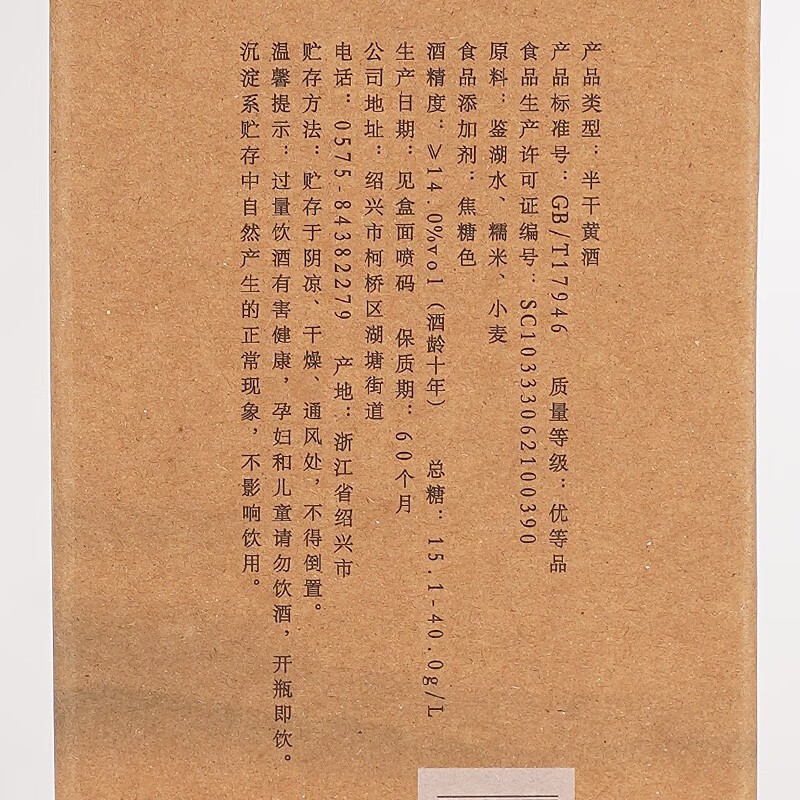 产品类型：半干黄酒
产品标准号：GB/T17946 质量等级：优等品
食品生产许可证编号：SC10333062100390
原料：鉴湖水、糯米、小麦
食品添加剂：焦糖色
酒精度：≥14.0%vol（酒龄十年） 总糖：15.1-40.0g/L
生产日期：见盒面喷码 保质期：60个月
公司地址：绍兴市柯桥区湖塘街道
电话：0575-84382279 产地：浙江省绍兴市
贮存方法：贮存于阴凉、干燥、通风处，不得倒置。
温馨提示：过量饮酒有害健康，孕妇和儿童请勿饮酒，开瓶即饮。
沉淀系贮存中自然产生的正常现象，不影响饮用。